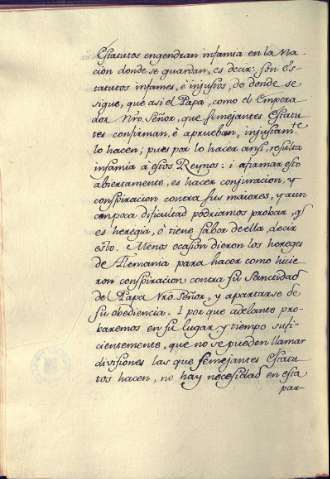 Estatutos engendran infamia en la na
cion donde se guardan, es decir: son es
tatutos infames, e injustos, de donde se
sigue, que asi el Papa, como el Empera
dor Nro Señor, que semejantes Estatu
tos confirman, è aprueban, injustamte
lo hacen; pues por lo hacer ansi, resulta
infamia à estos Reynos: i afirmar esto
abiertamente, es hacer conjuracion, y
conspiracion contra sus maiores, y aun
con poca dificultad podriamos probar q̃
es heregia, ò tiene sabor de ella, decir
esto. Menos ocasion dieron los hereges
de Alemania para hacer como hicie
ron conspiracion contra su Santidad
del Papa Nro Señor, y apartarse de
su obediencia. I por que adelante pro
baremos en su lugar y tiempo sufi
cientemente, que no se pueden llamar
divisiones las que semejantes Estatu
tos hacen, no hay necesidad en esta
par